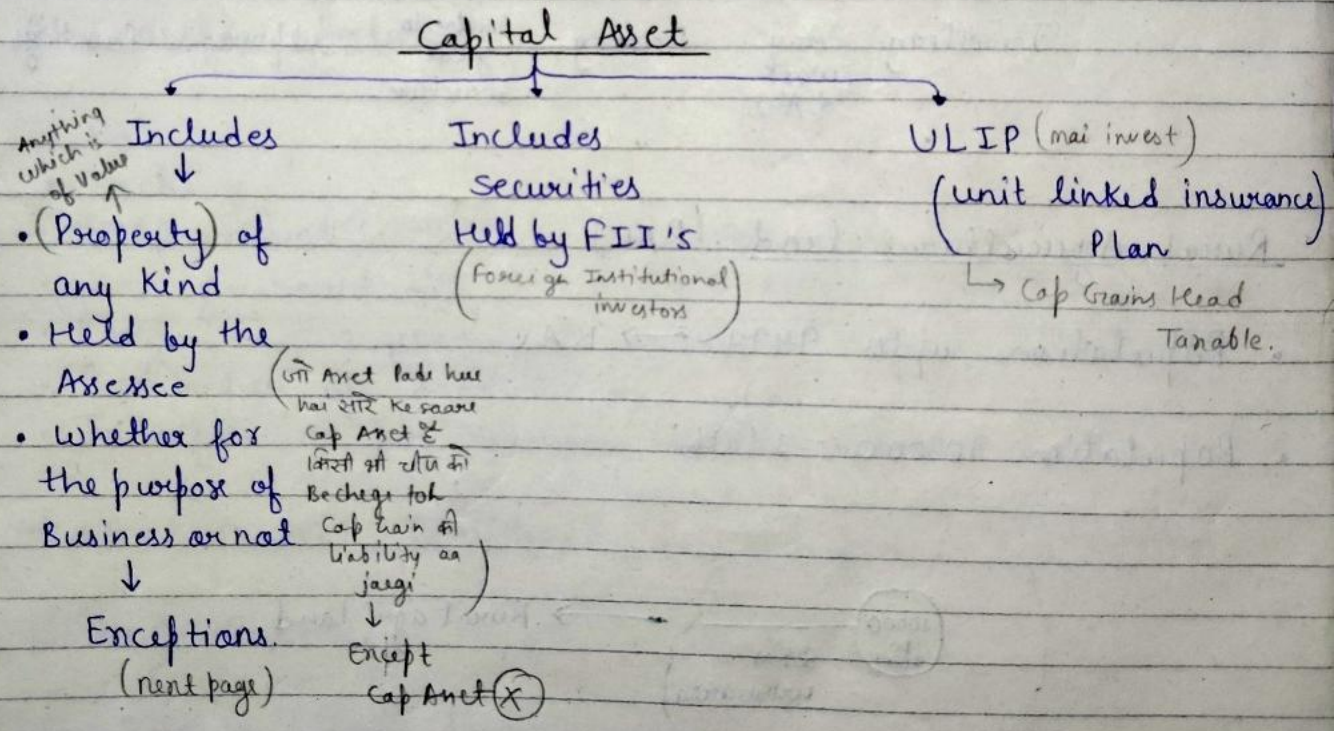 Capital Asset
Anything
which is
of value
Includes
• (Property) of
any Kind
• Held by the
Assessee
• Whether for
the purpose of
Business or not
Exceptions.
(next page)
(जो Asset Pade hue
hai सारे ke saare
Cap Asset है
किसी भी चीज को
Bechege toh
Cap Gain की
liability aa
jaegi)
Except
Cap Asset (X)
Includes
securities
Held by FII's
(Foreign Institutional
investors)
ULIP (mai invest)
(unit linked insurance)
Plan
Cap Gains Head
Taxable.